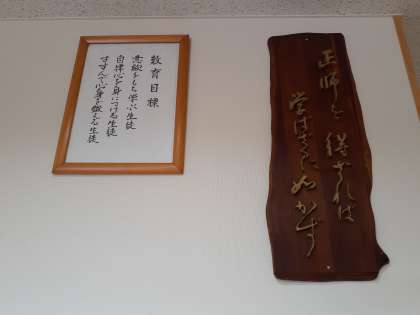 教育目標
意欲をもち学ぶ生徒
自律心を身につける生徒
すすんで心身を鍛える生徒
正師を得ざれば
学ばざるに如かず